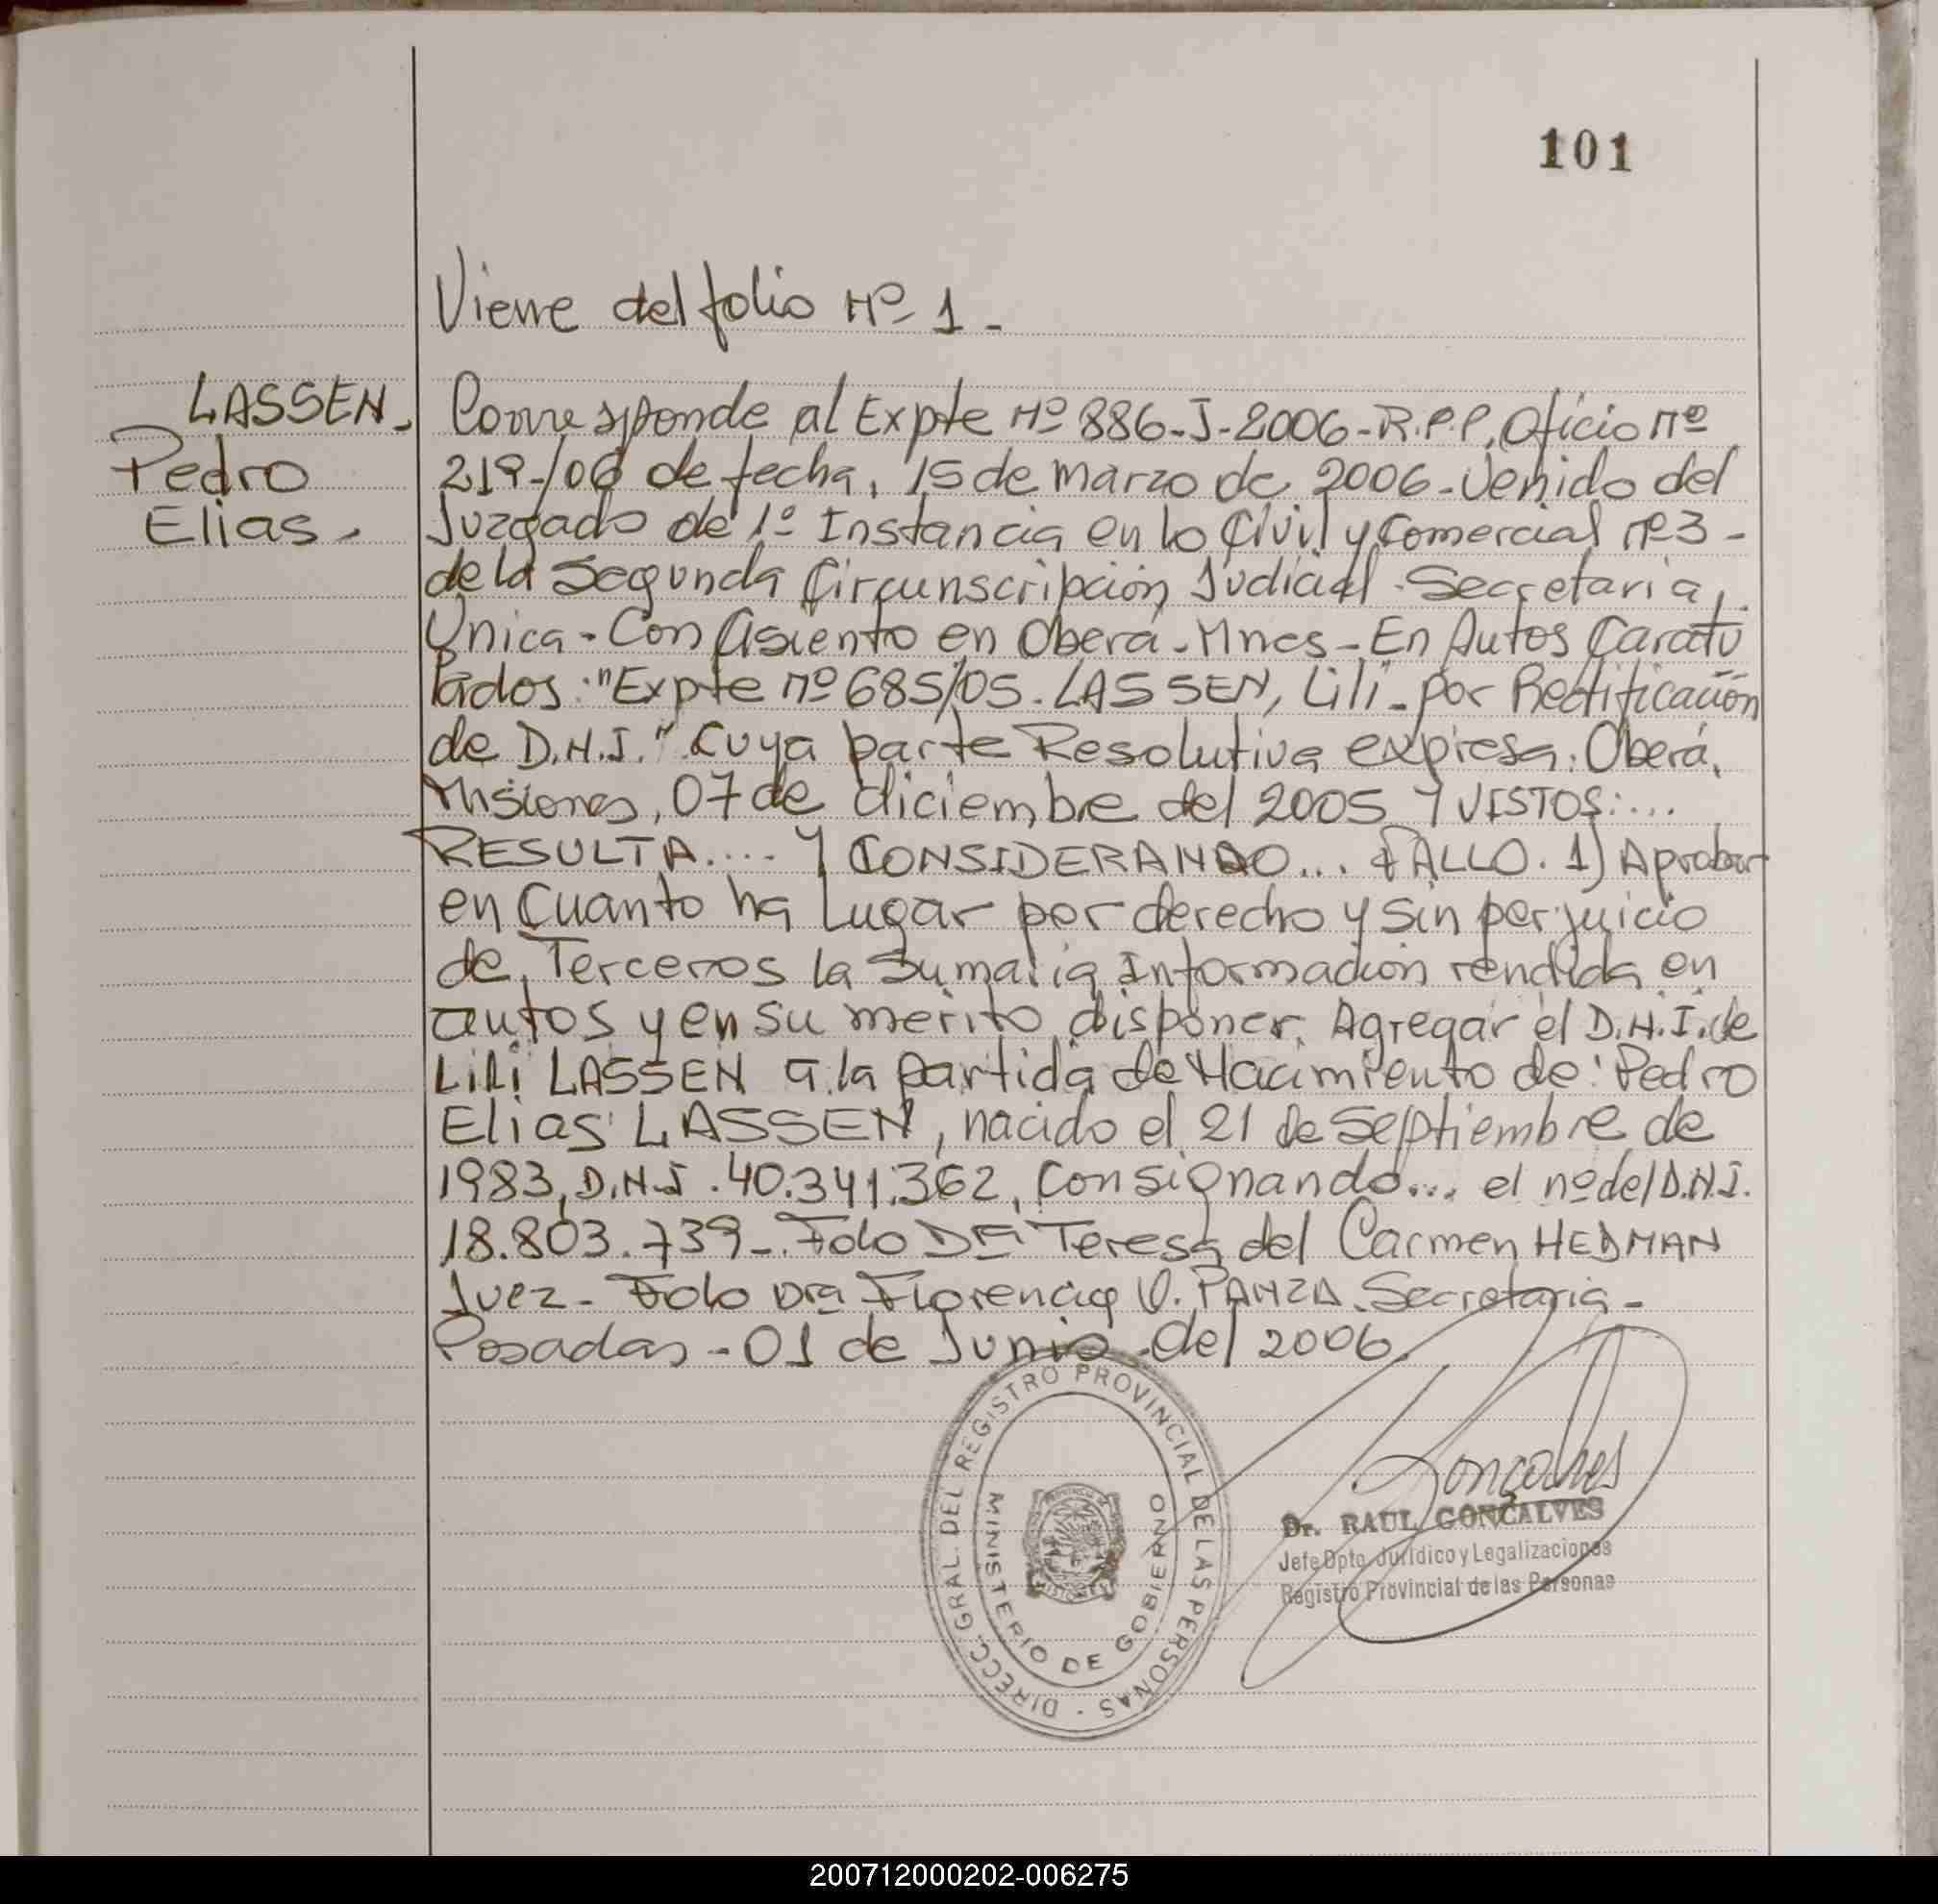 101
Viene del folio Nº 1 -
LASSEN -
Pedro
Elias -
Corresponde al Expte Nº 886-J-2006-R.P.P, Oficio nº
219-/06 de fecha, 15 de marzo de 2006 - venido del
Juzgado de 1º Instancia en lo Civil y Comercial nº 3 -
de la Segunda Circunscripción Judicial - Secretaria
Unica - Con Asiento en Oberá - Mnes - En Autos Caratu
lados: "Expte nº 685/05. LASSEN, Lili - por Rectificación
de D.N.I." Cuya parte Resolutiva expresa: Oberá,
Misiones, 07 de diciembre del 2005 Y VISTOS: ...
RESULTA .... Y CONSIDERANDO ... FALLO. 1) Aprobar
en Cuanto ha Lugar por derecho y sin perjuicio
de Terceros la Sumaria Información rendida en
autos y en su merito disponer. Agregar el D.N.I. de
Lili LASSEN a la partida de Nacimiento de: Pedro
Elias LASSEN, nacido el 21 de Septiembre de
1983, D.N.I. 40.341.362, Consignando ... el nº del D.N.I.
18.803.739 - Fdo Dra Teresa del Carmen HEDMAN
Juez - Fdo Dra Florencia V. PANZA. Secretaria -
Posadas - 01 de Junio del 2006.
DIRECC. GRAL. DEL REGISTRO PROVINCIAL DE LAS PERSONAS
MINISTERIO DE GOBIERNO
Goncalves
Dr. RAUL GONCALVES
Jefe Dpto. Jurídico y Legalizaciones
Registro Provincial de las Personas
200712000202-006275